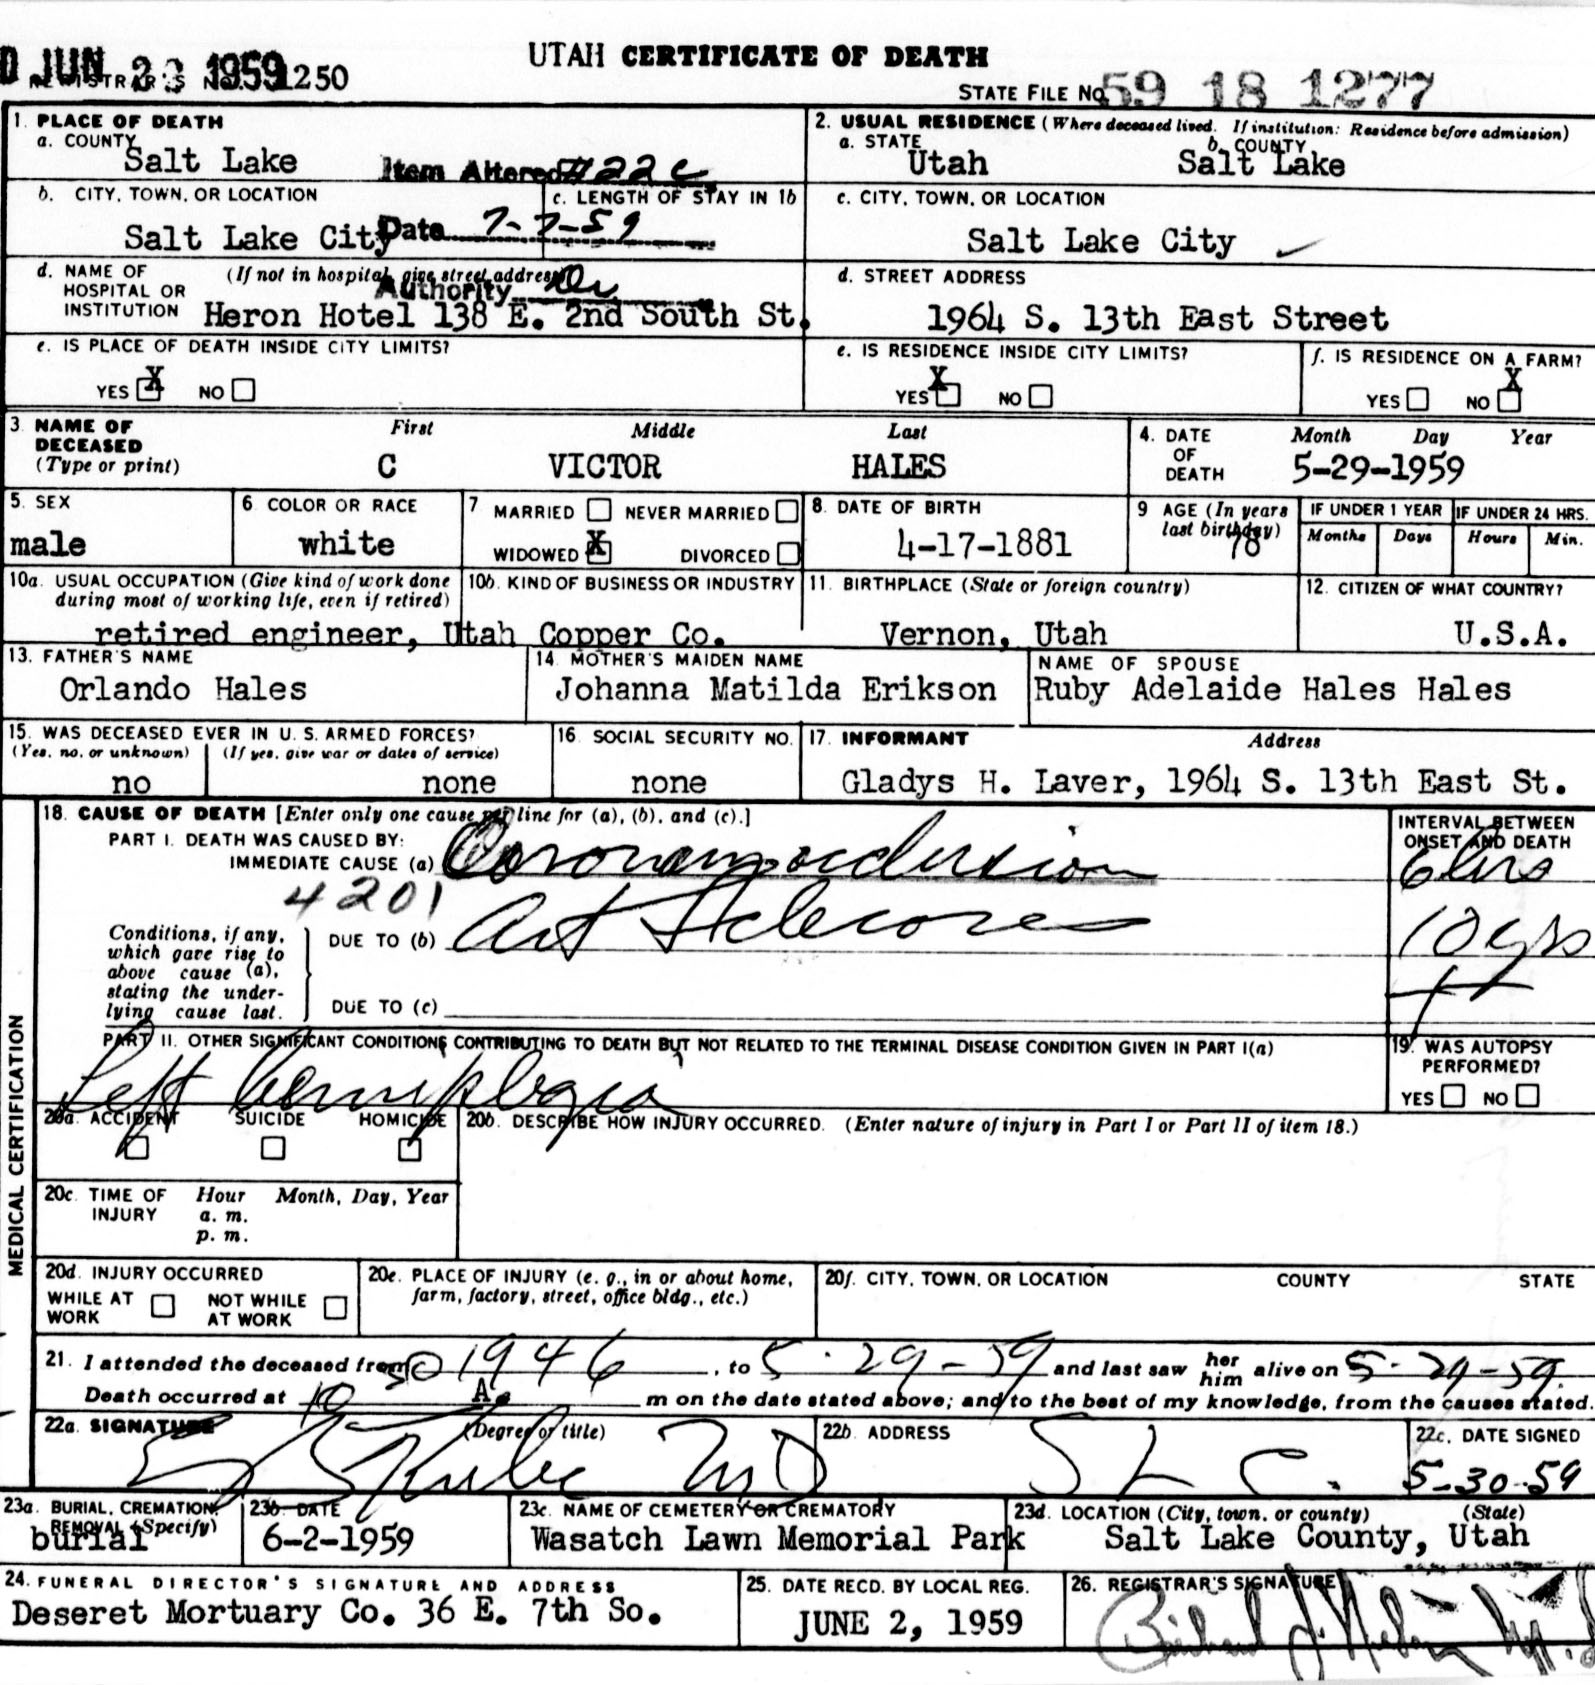 UTAH CERTIFICATE OF DEATH
JUN 23 1959
REGISTRAR'S NO. 1250
STATE FILE NO. 59 18 1277
1. PLACE OF DEATH
a. COUNTY
Salt Lake
Item Altered #22c
b. CITY, TOWN, OR LOCATION
Salt Lake City
c. LENGTH OF STAY IN 1b
Date 7-7-59
d. NAME OF HOSPITAL OR INSTITUTION
(If not in hospital, give street address)
Authority Dr
Heron Hotel 138 E. 2nd South St.
e. IS PLACE OF DEATH INSIDE CITY LIMITS?
YES X NO
2. USUAL RESIDENCE (Where deceased lived. If institution: Residence before admission)
a. STATE
Utah
b. COUNTY
Salt Lake
c. CITY, TOWN, OR LOCATION
Salt Lake City
d. STREET ADDRESS
1964 S. 13th East Street
e. IS RESIDENCE INSIDE CITY LIMITS?
YES X NO
f. IS RESIDENCE ON A FARM?
YES NO X
3. NAME OF DECEASED
(Type or print)
First Middle Last
C VICTOR HALES
4. DATE OF DEATH
Month Day Year
5-29-1959
5. SEX
male
6. COLOR OR RACE
white
7 MARRIED NEVER MARRIED
WIDOWED X DIVORCED
8. DATE OF BIRTH
4-17-1881
9 AGE (In years last birthday)
78
IF UNDER 1 YEAR
Months Days
IF UNDER 24 HRS.
Hours Min.
10a. USUAL OCCUPATION (Give kind of work done during most of working life, even if retired)
10b. KIND OF BUSINESS OR INDUSTRY
retired engineer, Utah Copper Co.
11. BIRTHPLACE (State or foreign country)
Vernon, Utah
12. CITIZEN OF WHAT COUNTRY?
U.S.A.
13. FATHER'S NAME
Orlando Hales
14. MOTHER'S MAIDEN NAME
Johanna Matilda Erikson
NAME OF SPOUSE
Ruby Adelaide Hales Hales
15. WAS DECEASED EVER IN U. S. ARMED FORCES?
(Yes, no, or unknown) (If yes, give war or dates of service)
no none
16. SOCIAL SECURITY NO.
none
17. INFORMANT Address
Gladys H. Laver, 1964 S. 13th East St.
MEDICAL CERTIFICATION
18. CAUSE OF DEATH [Enter only one cause per line for (a), (b), and (c).]
INTERVAL BETWEEN ONSET AND DEATH
PART I. DEATH WAS CAUSED BY:
IMMEDIATE CAUSE (a) Coronary occlusion 6 hrs
4201
Conditions, if any, which gave rise to above cause (a), stating the underlying cause last.
DUE TO (b) Art Scleroses 10 yrs
DUE TO (c)
PART II. OTHER SIGNIFICANT CONDITIONS CONTRIBUTING TO DEATH BUT NOT RELATED TO THE TERMINAL DISEASE CONDITION GIVEN IN PART I(a)
Left hemiplegia
19. WAS AUTOPSY PERFORMED?
YES NO
20a. ACCIDENT SUICIDE HOMICIDE
20b. DESCRIBE HOW INJURY OCCURRED. (Enter nature of injury in Part I or Part II of item 18.)
20c. TIME OF INJURY
Hour Month, Day, Year
a. m.
p. m.
20d. INJURY OCCURRED
WHILE AT WORK NOT WHILE AT WORK
20e. PLACE OF INJURY (e. g., in or about home, farm, factory, street, office bldg., etc.)
20f. CITY, TOWN, OR LOCATION COUNTY STATE
21. I attended the deceased from 1946, to 5-29-59 and last saw her him alive on 5-29-59.
Death occurred at 10 A. m on the date stated above; and to the best of my knowledge, from the causes stated.
22a. SIGNATURE (Degree or title)
MD
22b. ADDRESS
SLC.
22c. DATE SIGNED
5-30-59
23a. BURIAL, CREMATION, REMOVAL (Specify)
burial
23b. DATE
6-2-1959
23c. NAME OF CEMETERY OR CREMATORY
Wasatch Lawn Memorial Park
23d. LOCATION (City, town, or county) (State)
Salt Lake County, Utah
24. FUNERAL DIRECTOR'S SIGNATURE AND ADDRESS
Deseret Mortuary Co. 36 E. 7th So.
25. DATE RECD. BY LOCAL REG.
JUNE 2, 1959
26. REGISTRAR'S SIGNATURE